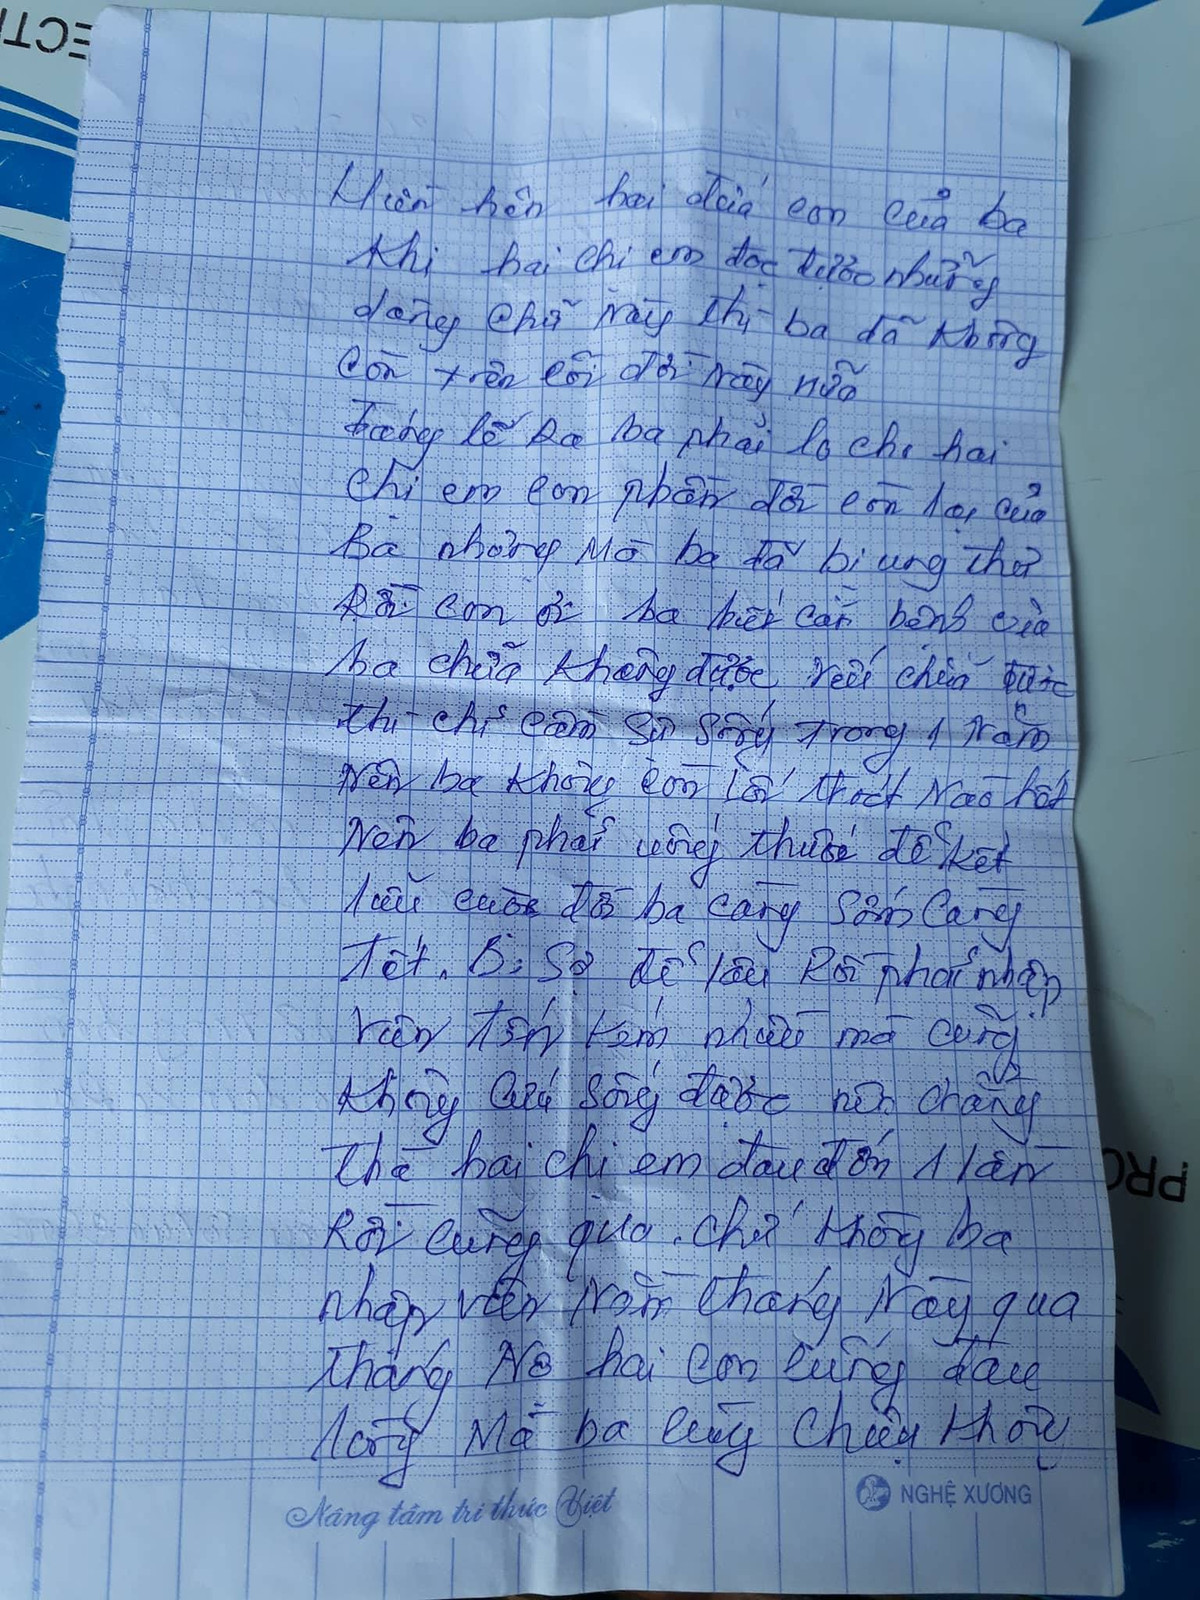 hai đứa con của ba
Khi hai chị em đọc được những
dòng chữ này thì ba đã không
còn trên cõi đời này nữa
Đáng lẽ ra ba phải lo cho hai
chị em con phần đời còn lại của
Ba nhưng Mà ba đã bị ung thư
Rồi con ơi ba biết căn bệnh của
ba chữa không được nếu chữa được
thì chỉ cầm sự sống trong 1 năm
Nên ba không còn lối thoát nào hết
Nên ba phải uống thuốc để kết
liễu cuộc đời ba càng sớm càng
Tốt. Bởi Sợ để lâu Rồi phải nhập
viện tốn kém nhiều mà cũng
không cứu sống được nên chẳng
thà hai chị em đau đớn 1 lần
Rồi cũng qua. chứ không ba
nhập viện nằm tháng này qua
tháng nọ hai con cũng đau
lòng Mà ba cũng chịu không
Nâng tầm tri thức Việt
NGHỆ XƯƠNG
PRO
ECTI